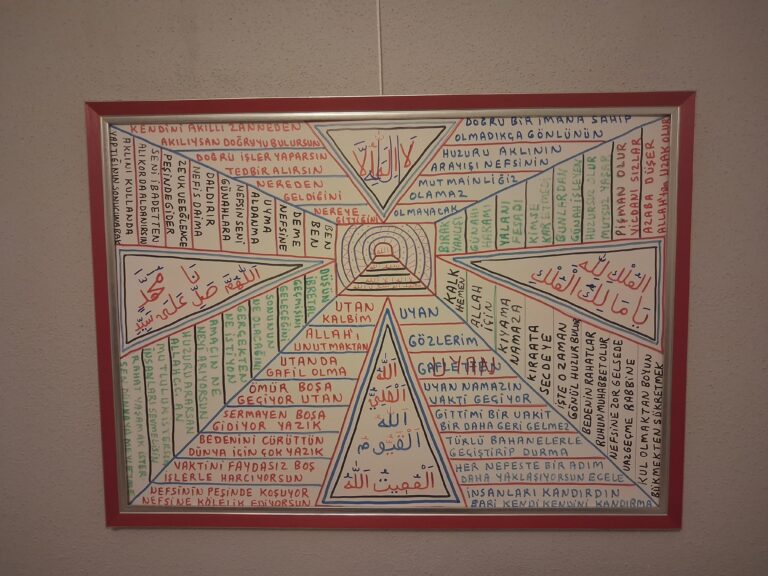 KENDİNİ AKILLI ZANNEDEN
AKILLIYSAN DOĞRUYU BULURSUN
DOĞRU İŞLER YAPARSIN
TEDBİR ALIRSIN
NEREDEN
GELDİĞİNİ
NEREYE
GİTTİĞİNİ
لا اله الا الله
DOĞRU BİR İMANA SAHİP
OLMADIKÇA GÖNLÜNÜN
HUZURU AKLININ
ARAYIŞI NEFSİNİN
MUTMAİNLİĞİ
OLAMAZ
OLMAYACAK
BEN
BEN
DEME
NEFSİNE
UYMA
ALDANMA
NEFSİN SENİ
GÜNAHLARA
DALDIRIR
NEFİS DAİMA
ZEVK VE EĞLENCE
PEŞİNDE GİDER
SENİ İBADETTEN
ALIKOR DA ALDANIRSIN
AKLINI KULLAN DA
BIRAK
YANLIŞI
GÜNAHI
HARAMI
YALANI
FESADI
KİMSEYİ
GÜNLERDEN
HUZURSUZ OLUR
MUTSUZ YAŞAR
PİŞMAN OLUR
VİCDANI SIZLAR
AZABA DÜŞER
ALLAH'tan UZAK OLUR
يا محمد
اللهم صل على سيد
الفلك لله
يا مالك الفلك
DÜŞÜN
İBRETLE
GEÇMİŞİNİ
GELECEĞİNİ
SONUNUN
NE OLACAĞINI
GERÇEKTEN
NE İSTİYON
AMACIN NE
NEYİ ARIYORSUN
HUZURU ARARSAN
ALLAH'CCTAN
MUTLULUK İSTERSEN
İNSANLARI SEVİNDİR
RAHAT YAŞAMAK İSTER
UTAN
KALBİM
ALLAH'I
UNUTMAKTAN
UTANDA
GAFİL OLMA
ÖMÜR BOŞA
GEÇİYOR UTAN
SERMAYEN BOŞA
GİDİYOR YAZIK
BEDENİNİ CÜRÜTTÜN
DÜNYA İÇİN ÇOK YAZIK
VAKTİNİ FAYDASIZ BOŞ
İŞLERLE HARCIYORSUN
NEFSİNİN PEŞİNDE KOŞUYOR
NEFSİNE KÖLELİK EDİYORSUN
الله
الحي
الله
القيوم
الله
UYAN
GÖZLERİM
GAFLETTEN
UYAN
UYAN NAMAZIN
VAKTİ GEÇİYOR
GİTTİMİ BİR VAKİT
BİR DAHA GERİ GELMEZ
TÜRLÜ BAHANELERLE
GEÇİŞTİRİP DURMA
HER NEFESTE BİR ADIM
DAHA YAKLAŞIYORSUN ECELE
İNSANLARI KANDIRDIN
BARİ KENDİ KENDİNİ KANDIRMA
KALK
HEMEN
ALLAH
İÇİN
KIYAMA
NAMAZA
KIRAATA
SECDEYE
İŞTE O ZAMAN
GÖNÜL HUZUR BULUR
BEDENİN RAHATLAR
RUHUN MUHABBET OLUR
NEFSİNE ZOR GELSEDE
VAZGEÇME RABBİNE
KUL OLMAKTAN BOYUN
BÜKMEKTEN ŞÜKRETMEK